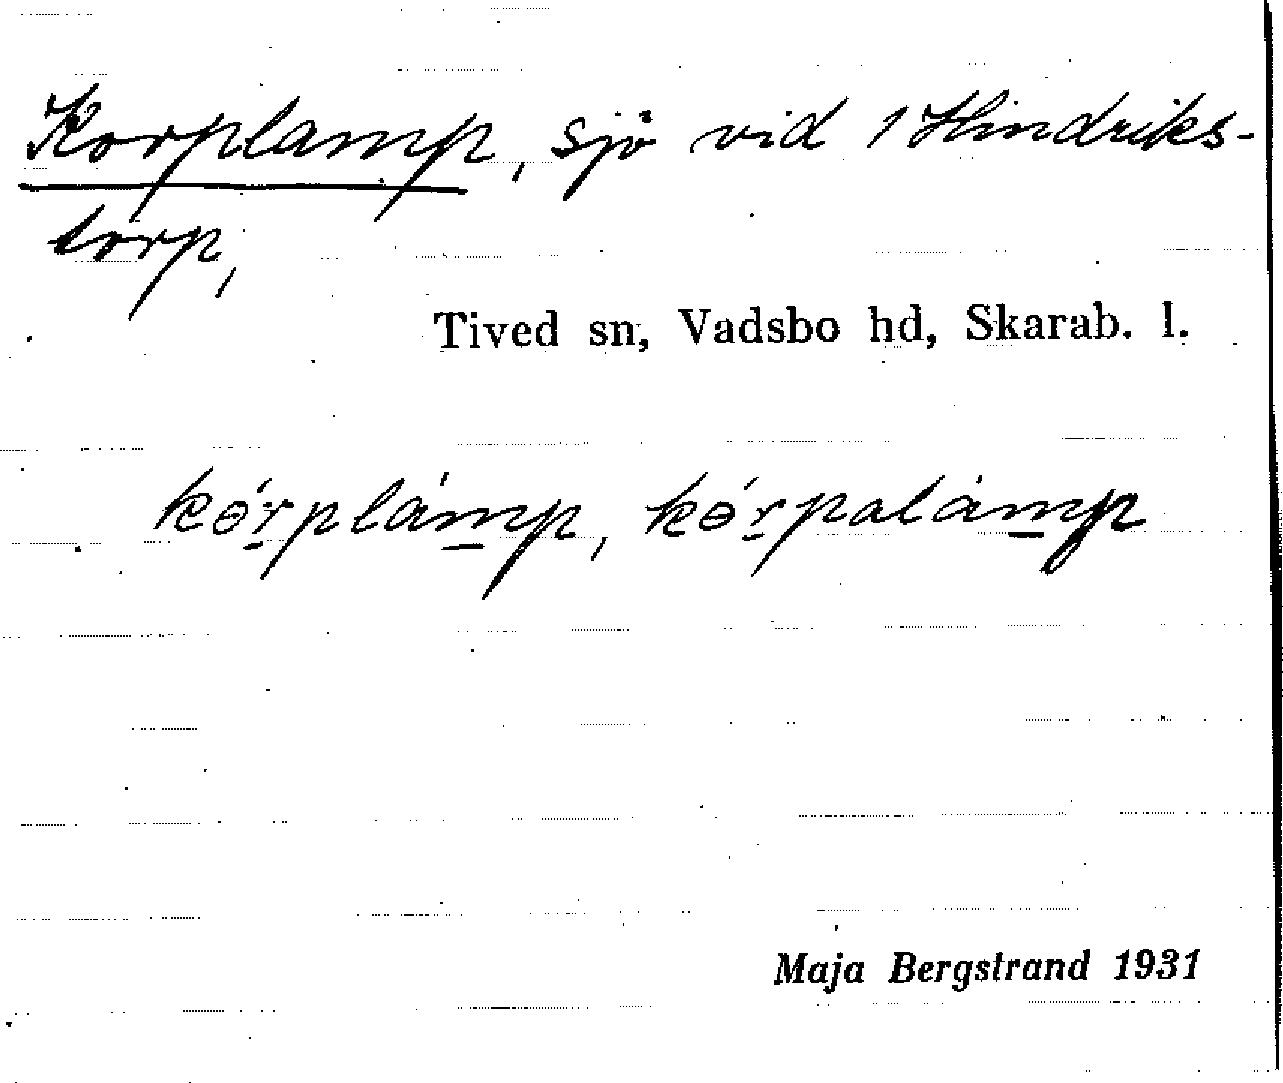 Korplamp, sjö vid 1 Hindriks-
torp,
Tived sn, Vadsbo hd, Skarab. l.
kɵ́r̠plám̠p, kɵ́r̠palàm̠p
Maja Bergstrand 1931